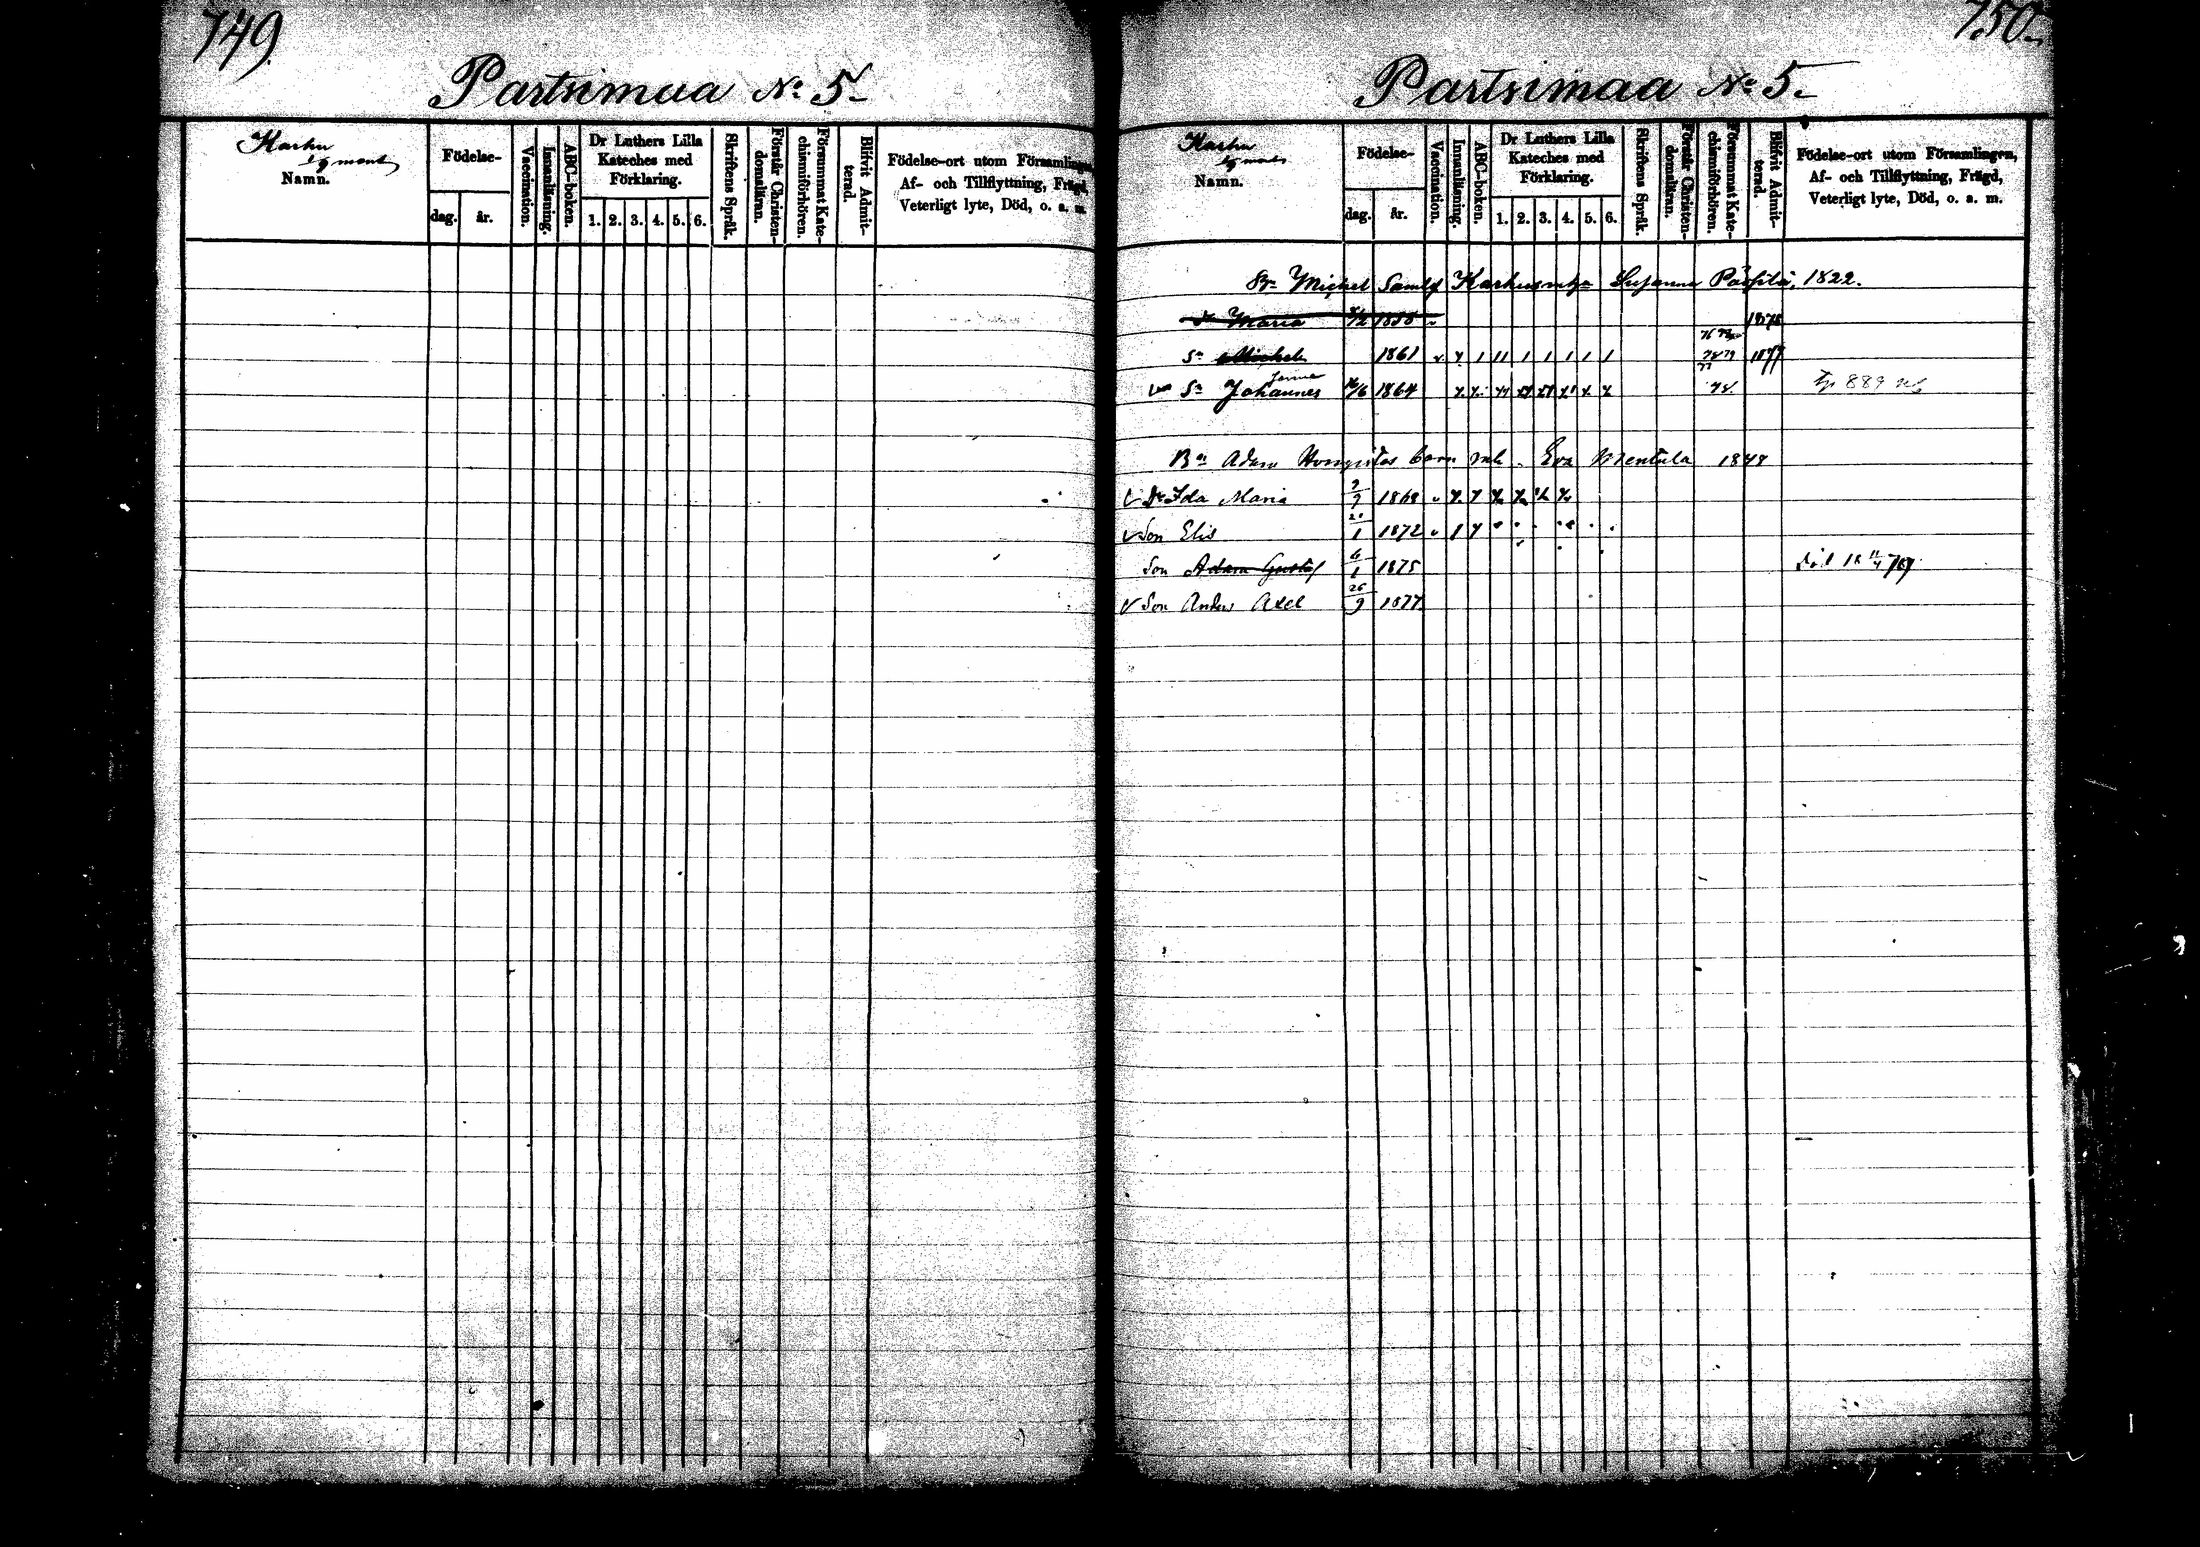 749.
Partsimaa No 5.
Karhu
Namn.
Födelse-
dag.
år.
Vaccination.
Innanläsning.
ABC-boken.
Dr Luthers Lilla
Kateches med
Förklaring.
1. 2. 3. 4. 5. 6.
Skriftens Språk.
Förstår Christen-
domsläran.
Försummat Kate-
chismiförhören.
Blifvit Admit-
terad.
Födelse-ort utom Församlingen
Af- och Tillflyttning, Frägd,
Veterligt lyte, Död, o. a. m.
750.
Partsimaa No 5.
Karhu
Namn.
Födelse-
dag.
år.
Vaccination.
Innanläsning.
ABC-boken.
Dr Luthers Lilla
Kateches med
Förklaring.
1. 2. 3. 4. 5. 6.
Skriftens Språk.
Förstår Christen-
domsläran.
Försummat Kate-
chismiförhören.
Blifvit Admit-
terad.
Födelse-ort utom Församlingen,
Af- och Tillflyttning, Frägd,
Veterligt lyte, Död, o. a. m.
Michel Susanna 1822.
Maria 1875
Sn Michel 1861 1877
Sn Johannes 1864 78. 889
Adam barn Eva Mentula 1848
Dr Ida Maria 1868
Son Elis 1872
Son Adam Gustaf 6/1 1875
Son Anders Axel 26/9 1877